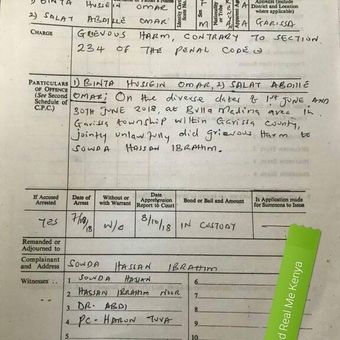 1) BINTA HUSEIN OMAR
2) SALAT ABDILLE OMAR
Identity Certificate
Serial No.
S
T
M
A
or Tribe
(Include
District and Location
when applicable)
GARISSA
CHARGE
GRIEVOUS HARM, CONTRARY TO SECTION
234 OF THE PENAL CODE
PARTICULARS
OF OFFENCE
(See Second
Schedule of
C.P.C.)
1) BINTA HUSSEIN OMAR, 2) SALAT ABDILLE
OMAR: On the diverse dates of 1ST JUNE AND
30TH JUNE 2018, at Bulla Medina area in
Garissa township within Garissa County,
jointly unlawfully did grievous Harm to
SOWDA HASSAN IBRAHIM.
If Accused
Arrested
Date of
Arrest
Without or
with Warrant
Date
Apprehension
Report to Court
Bond or Bail and Amount
Is Application made
for Summons to Issue
Yes
7/10/18
w/o
8/10/18
IN CUSTODY
Remanded or
Adjourned to
Complainant
and Address
SOWDA HASSAN IBRAHIM
Witnesses
1 SOWDA HASSAN
2 HASSAN IBRAHIM NOOR
3 DR. ABDI
4 PC. HARUN TUVA
5
6
7
8
9
10
d Real Me Kenya